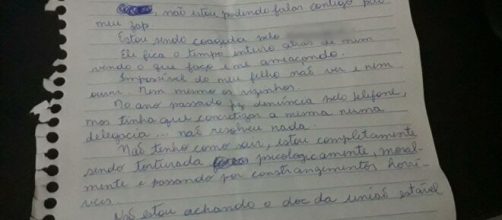 não estou podendo falar contigo pelo
meu zap.
Estou sendo coagida pelo
Ele fica o tempo inteiro atrás de mim
vendo o que faço e me ameaçando.
Impossível do meu filho não ver e nem
ouvir. Nem mesmo os vizinhos.
No ano passado fiz denúncia pelo telefone,
mas tinha que concretizar a mesma numa
delegacia... não resolveu nada.
Não tenho como sair, estou completamente
sendo torturada psicologicamente, moral-
mente e passando por constrangimentos horrí-
veis.
Não estou achando o doc da união estável